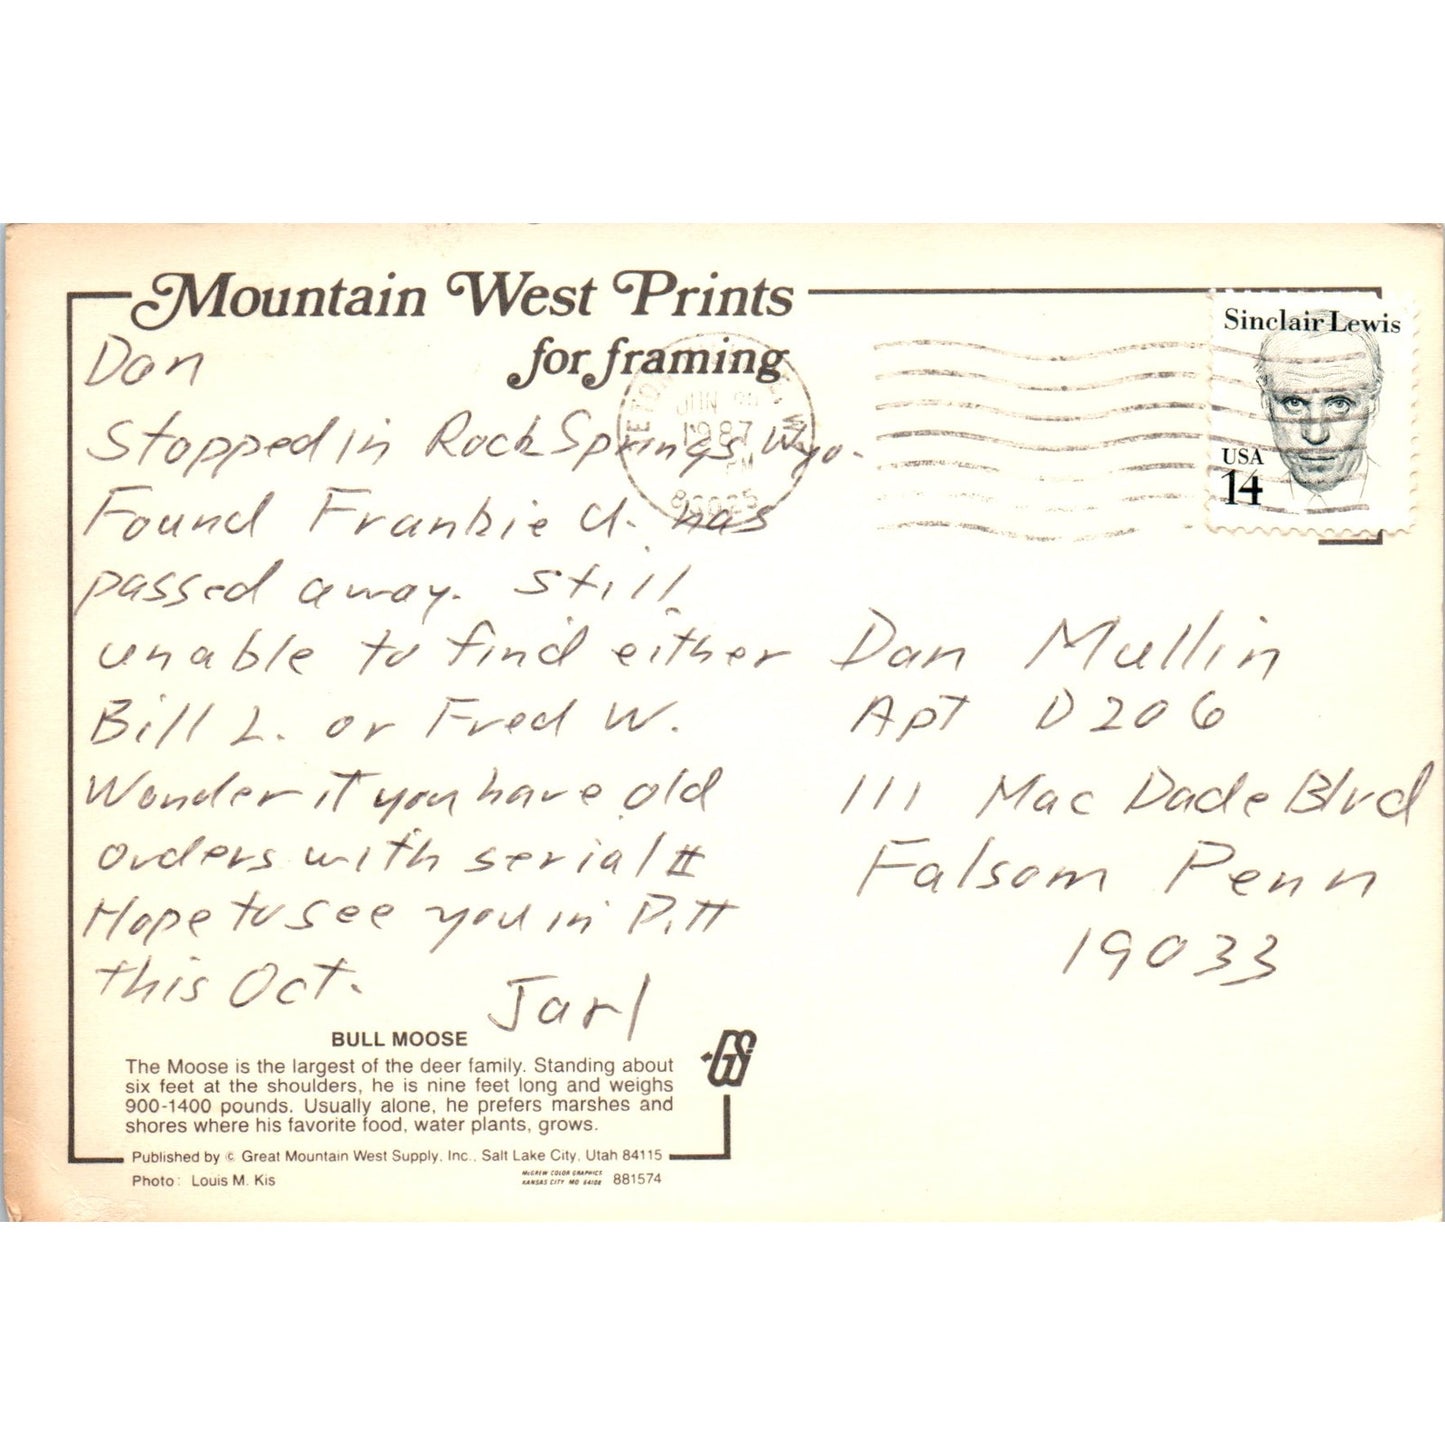 Mountain West Prints
for framing
Sinclair Lewis
USA
14
JUN
1987
PM
Dan
Stopped in Rock Springs Wyo.
Found Frankie U. has
passed away. Still
unable to find either
Bill L. or Fred W.
Wonder if you have old
orders with serial #
Hope to see you in Pitt
this Oct.
Jarl
Dan Mullin
Apt D 206
111 Mac Dade Blvd
Falsom Penn
19033
BULL MOOSE
The Moose is the largest of the deer family. Standing about
six feet at the shoulders, he is nine feet long and weighs
900-1400 pounds. Usually alone, he prefers marshes and
shores where his favorite food, water plants, grows.
Published by © Great Mountain West Supply, Inc., Salt Lake City, Utah 84115
Photo: Louis M. Kis
McGREW COLOR GRAPHICS
KANSAS CITY MO 64108
881574